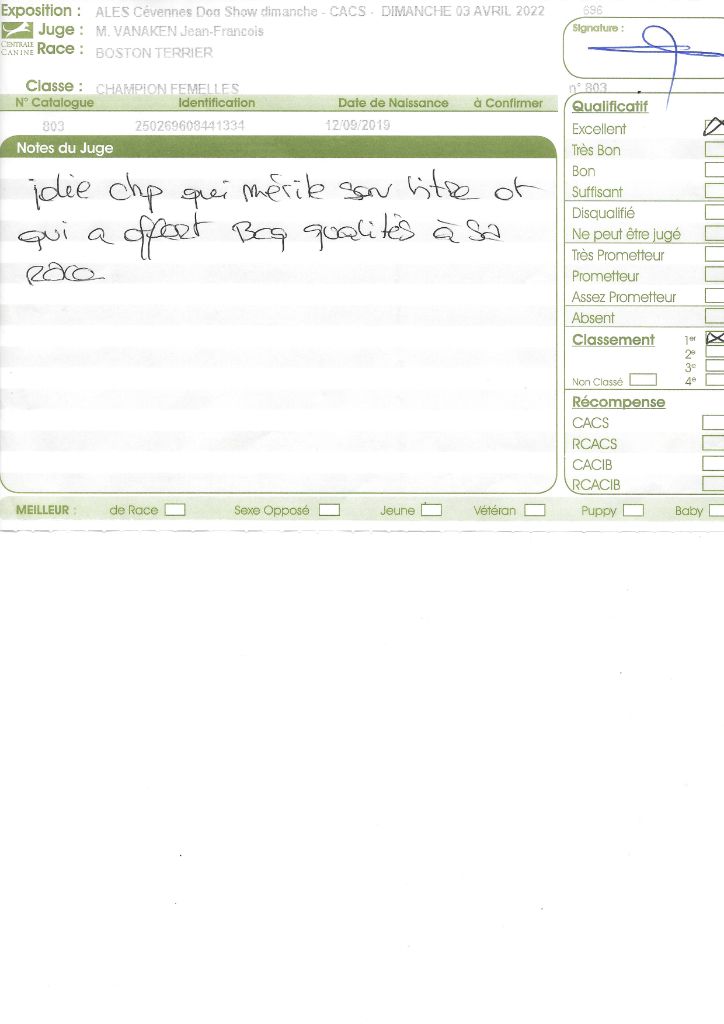 Exposition : ALES Cévennes Dog Show dimanche - CACS - DIMANCHE 03 AVRIL 2022 696
Juge : M. VANAKEN Jean-Francois
CENTRALE CANINE
Race : BOSTON TERRIER
Signature :
Classe : CHAMPION FEMELLES n° 803
N° Catalogue Identification Date de Naissance à Confirmer
803 250269608441334 12/09/2019
Notes du Juge
jolie chp qui mérite son titre et
qui a offert Bcq qualités à sa
race
Qualificatif
Excellent
Très Bon
Bon
Suffisant
Disqualifié
Ne peut être jugé
Très Prometteur
Prometteur
Assez Prometteur
Absent
Classement 1er
2e
3e
Non Classé 4e
Récompense
CACS
RCACS
CACIB
RCACIB
MEILLEUR : de Race Sexe Opposé Jeune Vétéran Puppy Baby